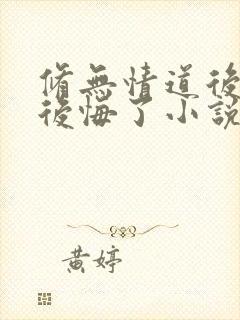 脩無情道後
後悔了小說
黃婷